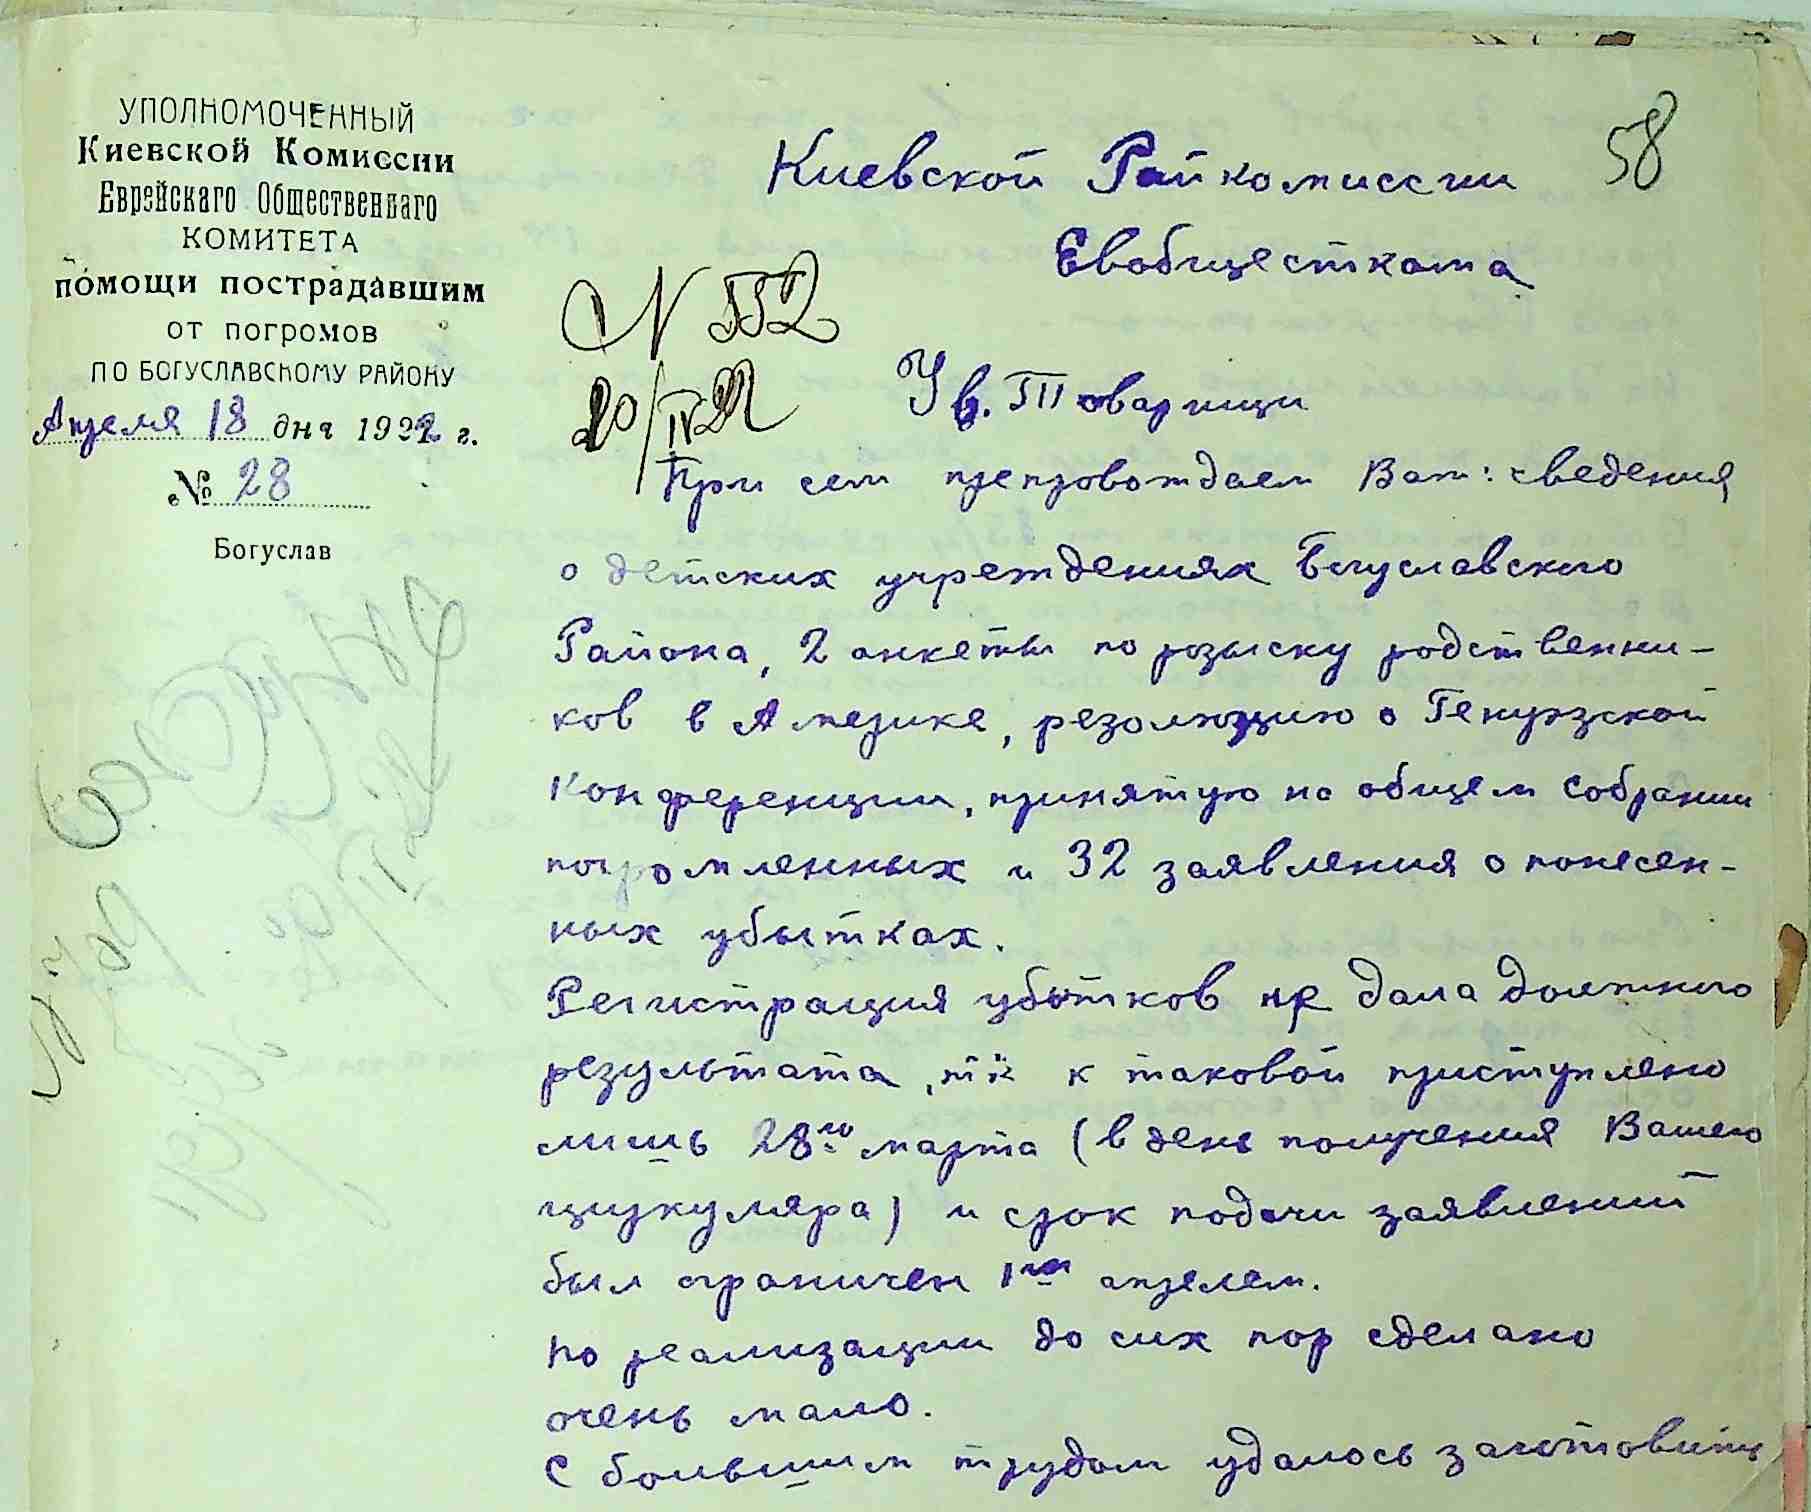 УПОЛНОМОЧЕННЫЙ
Киевской Комиссии
Еврейскаго Общественнаго
КОМИТЕТА
помощи пострадавшим
от погромов
ПО БОГУСЛАВСКОМУ РАЙОНУ
Апреля 18 дня 1922 г.
№ 28
Богуслав
58
Киевской Райкомиссии
Евобщесткома
N 552
20/IV 22
Ув. Товарищи
При сем препровождаем Вам: сведения
о детских учреждениях Богуславского
Района, 2 анкеты по розыску родственни-
ков в Америке, резолюцию о Генуэзской
Конференции, принятую на общем собрании
погромленных и 32 заявления о понесен-
ных убытках.
Регистрация убытков не дала должного
результата, т.к. к таковой приступлено
лишь 28го марта (в день получения Вашего
циркуляра) и срок подачи заявлений
был ограничен 1ым апрелем.
По реализации до сих пор сделано
очень мало.
С большим трудом удалось заготовить